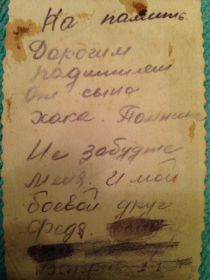 На память
Дорогим
родителям
От сына
Помните
Не забудте
меня. И мой
боевой друг
Федя.